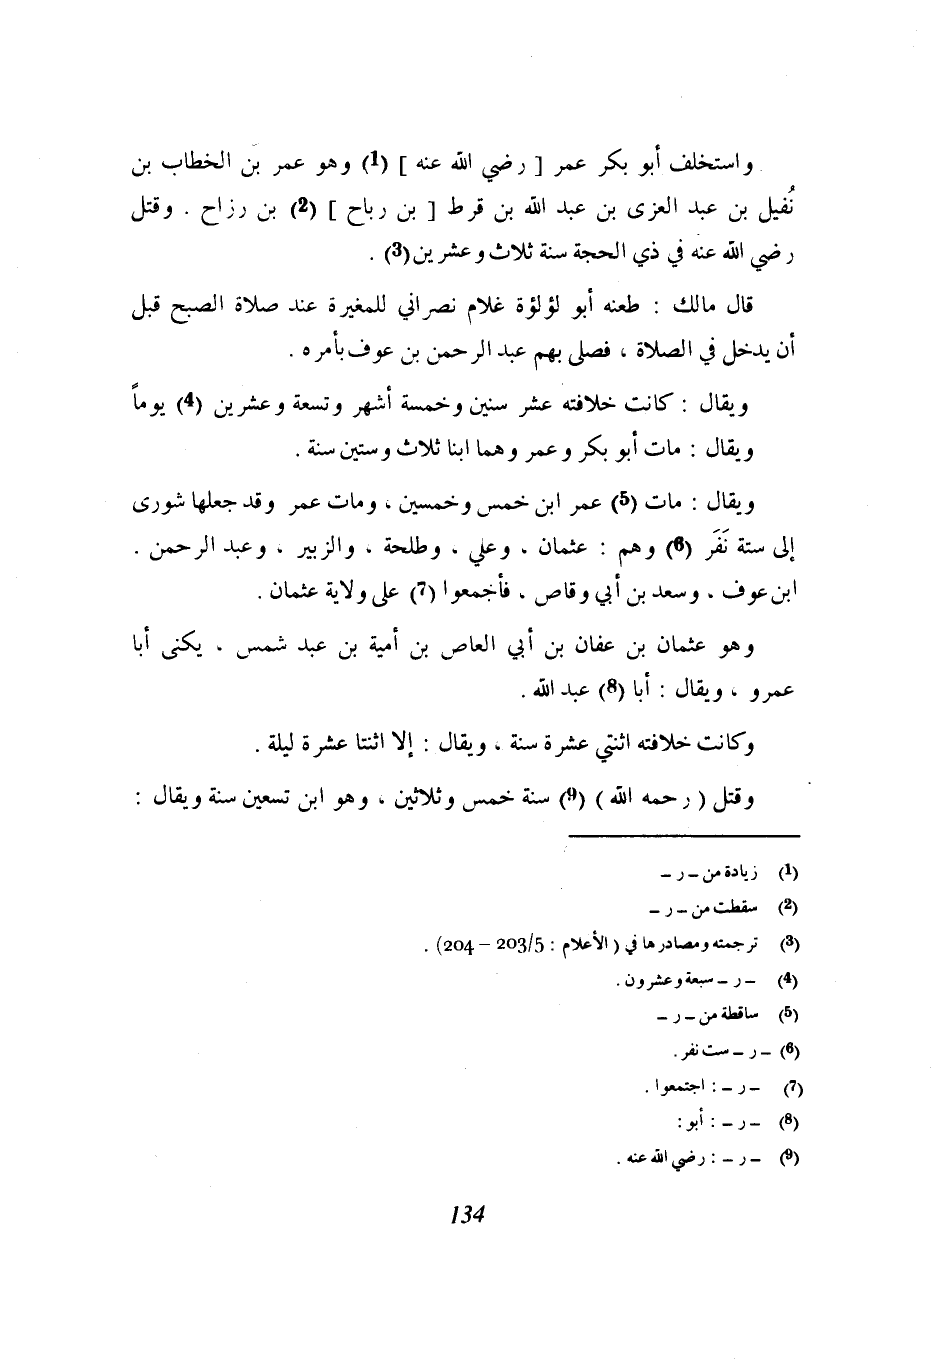 واستخلف أبو بكر عمر [ رضي الله عنه ] (1) وهو عمر بن الخطاب بن
نُفيل بن عبد العزى بن عبد الله بن قرط [ بن رباح ] (2) بن رزاح . وقتل
رضي الله عنه في ذي الحجة سنة ثلاث وعشرين (3) .
قال مالك : طعنه أبو لؤلؤة غلام نصراني للمغيرة عند صلاة الصبح قبل
أن يدخل في الصلاة ، فصلى بهم عبد الرحمن بن عوف بأمره .
ويقال : كانت خلافته عشر سنين وخمسة أشهر وتسعة وعشرين (4) يوماً
ويقال : مات أبو بكر وعمر وهما ابنا ثلاث وستين سنة .
ويقال : مات (5) عمر ابن خمس وخمسين ، ومات عمر وقد جعلها شورى
إلى ستة نَفَر (6) وهم : عثمان ، وعلي ، وطلحة ، والزبير ، وعبد الرحمن .
ابن عوف ، وسعد بن أبي وقاص ، فأجمعوا (7) على ولاية عثمان .
وهو عثمان بن عفان بن أبي العاص بن أمية بن عبد شمس ، يكنى أبا
عمرو ، ويقال : أبا (8) عبد الله .
وكانت خلافته اثنتي عشرة سنة ، ويقال : إلا اثنتا عشرة ليلة .
وقتل ( رحمه الله ) (9) سنة خمس وثلاثين ، وهو ابن تسعين سنة ويقال :
(1) زيادة من – ر –
(2) سقطت من – ر –
(3) ترجمته ومصادرها في ( الأعلام : 203/5 – 204) .
(4) – ر – سبعة وعشرون .
(5) ساقطة من – ر –
(6) – ر – ست نفر .
(7) – ر – : اجتمعوا .
(8) – ر – : أبو :
(9) – ر – : رضي الله عنه .
134